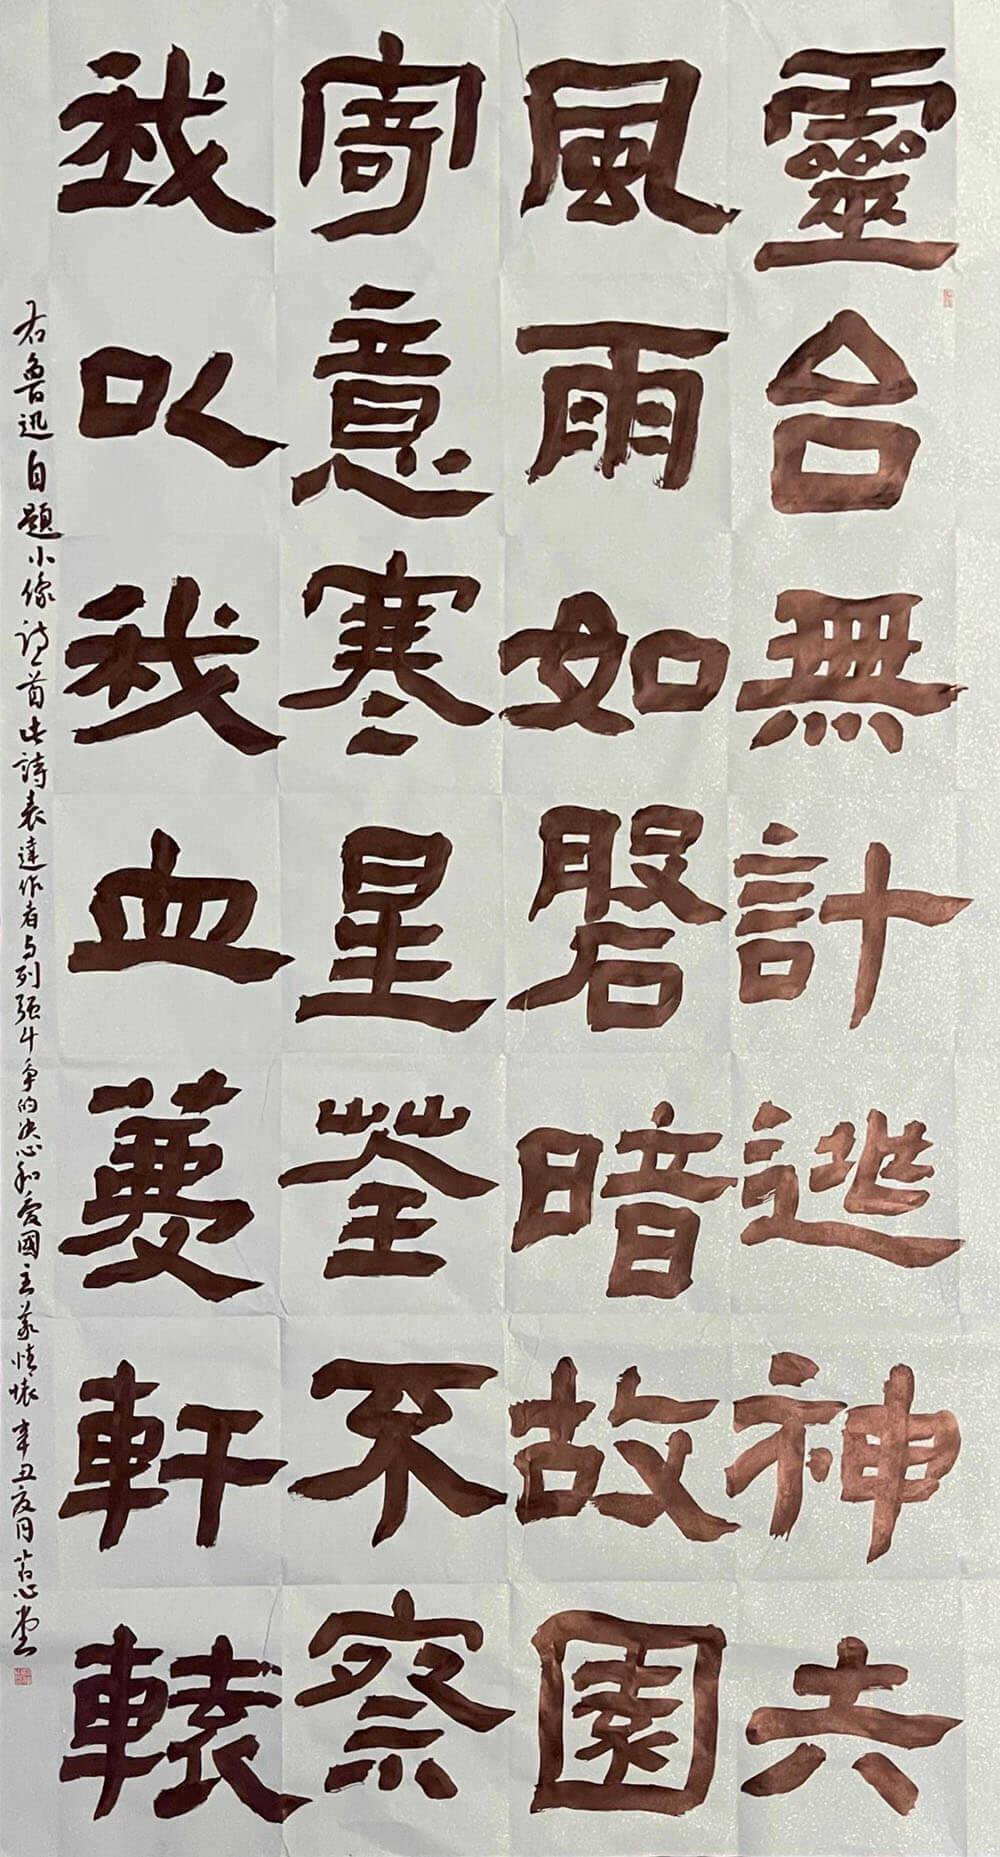 靈台無計逃神矢
風雨如磐暗故園
寄意寒星荃不察
我以我血薦軒轅
右魯迅自題小像诗一首此詩表達作者与列强斗争的决心和愛國主義情懷 辛丑夏月